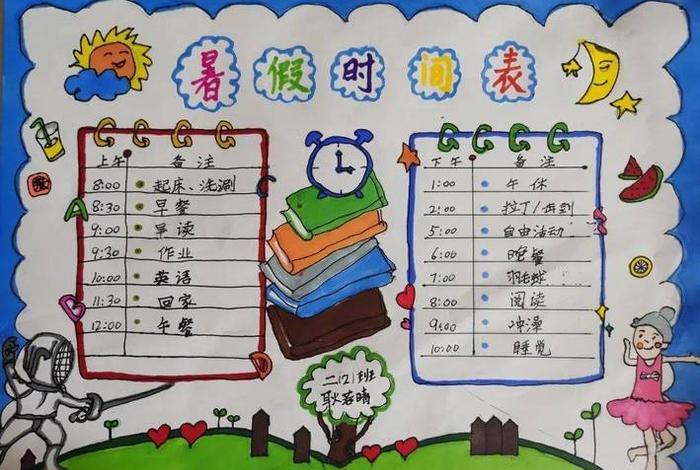 暑假时间表
上午 备注
8:00 起床、洗漱
8:30 早餐
9:00 早读
9:30 作业
10:00 英语
11:30 回家
12:00 午餐
下午 备注
1:00 午休
2:00 拉丁/击剑
5:00 自由活动
6:00 晚餐
7:00 羽毛球
8:00 阅读
9:00 冲澡
10:00 睡觉
A
B
C
D
二(2)班